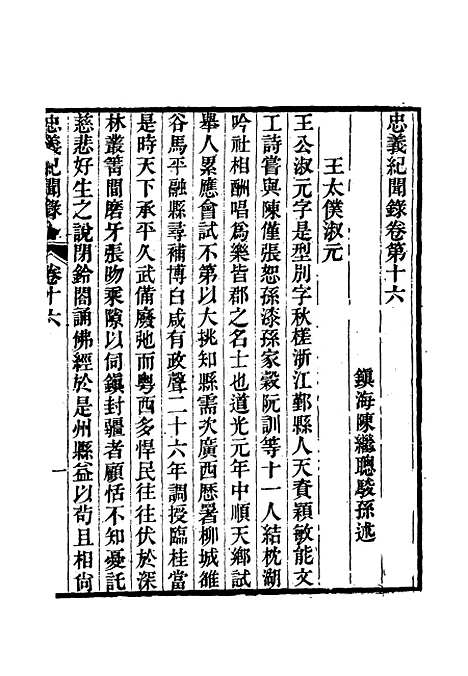 忠義紀聞錄卷第十六
鎭海陳繼聰駿孫述
王太僕淑元
王公淑元字是型別字秋槎浙江鄞縣人天資穎敏能文
工詩嘗與陳僅張恕孫漆孫家穀阮訓等十一人結枕湖
吟社相酬唱爲樂皆郡之名士也道光元年中順天鄉試
舉人累應會試不第以大挑知縣需次廣西歷署柳城雒
谷馬平融縣尋補博白咸有政聲二十六年調授臨桂當
是時天下承平久武備廢弛而粵西多悍民往往伏於深
林叢箐間磨牙張吻乘隙以伺鎭封疆者顧恬不知憂託
慈悲好生之說閉鈴閣誦佛經於是州縣益以苟且相尙
忠義紀聞錄 卷十六 一